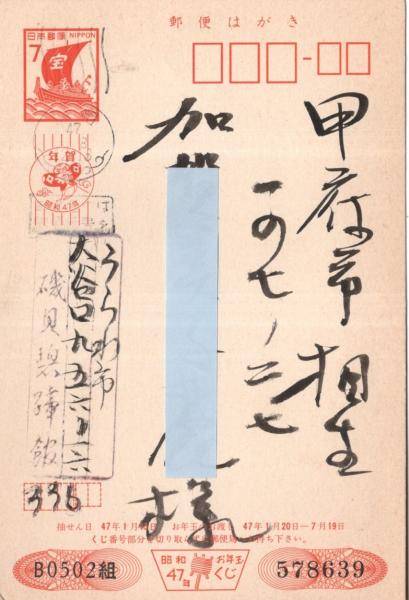 郵便はがき
日本郵便 NIPPON
7
年賀
昭和47年
甲府市相生
一の七ノ二七
加賀
様
うらわ市
大谷口九五六ノ一六
磯貝碧蹄館
336
抽せん日 47年1月 お年玉 47年1月20日―7月19日
くじ番号部分を切り取ら 郵便局 持ち下さい。
B0502組
昭和47年
お年玉くじ
578639